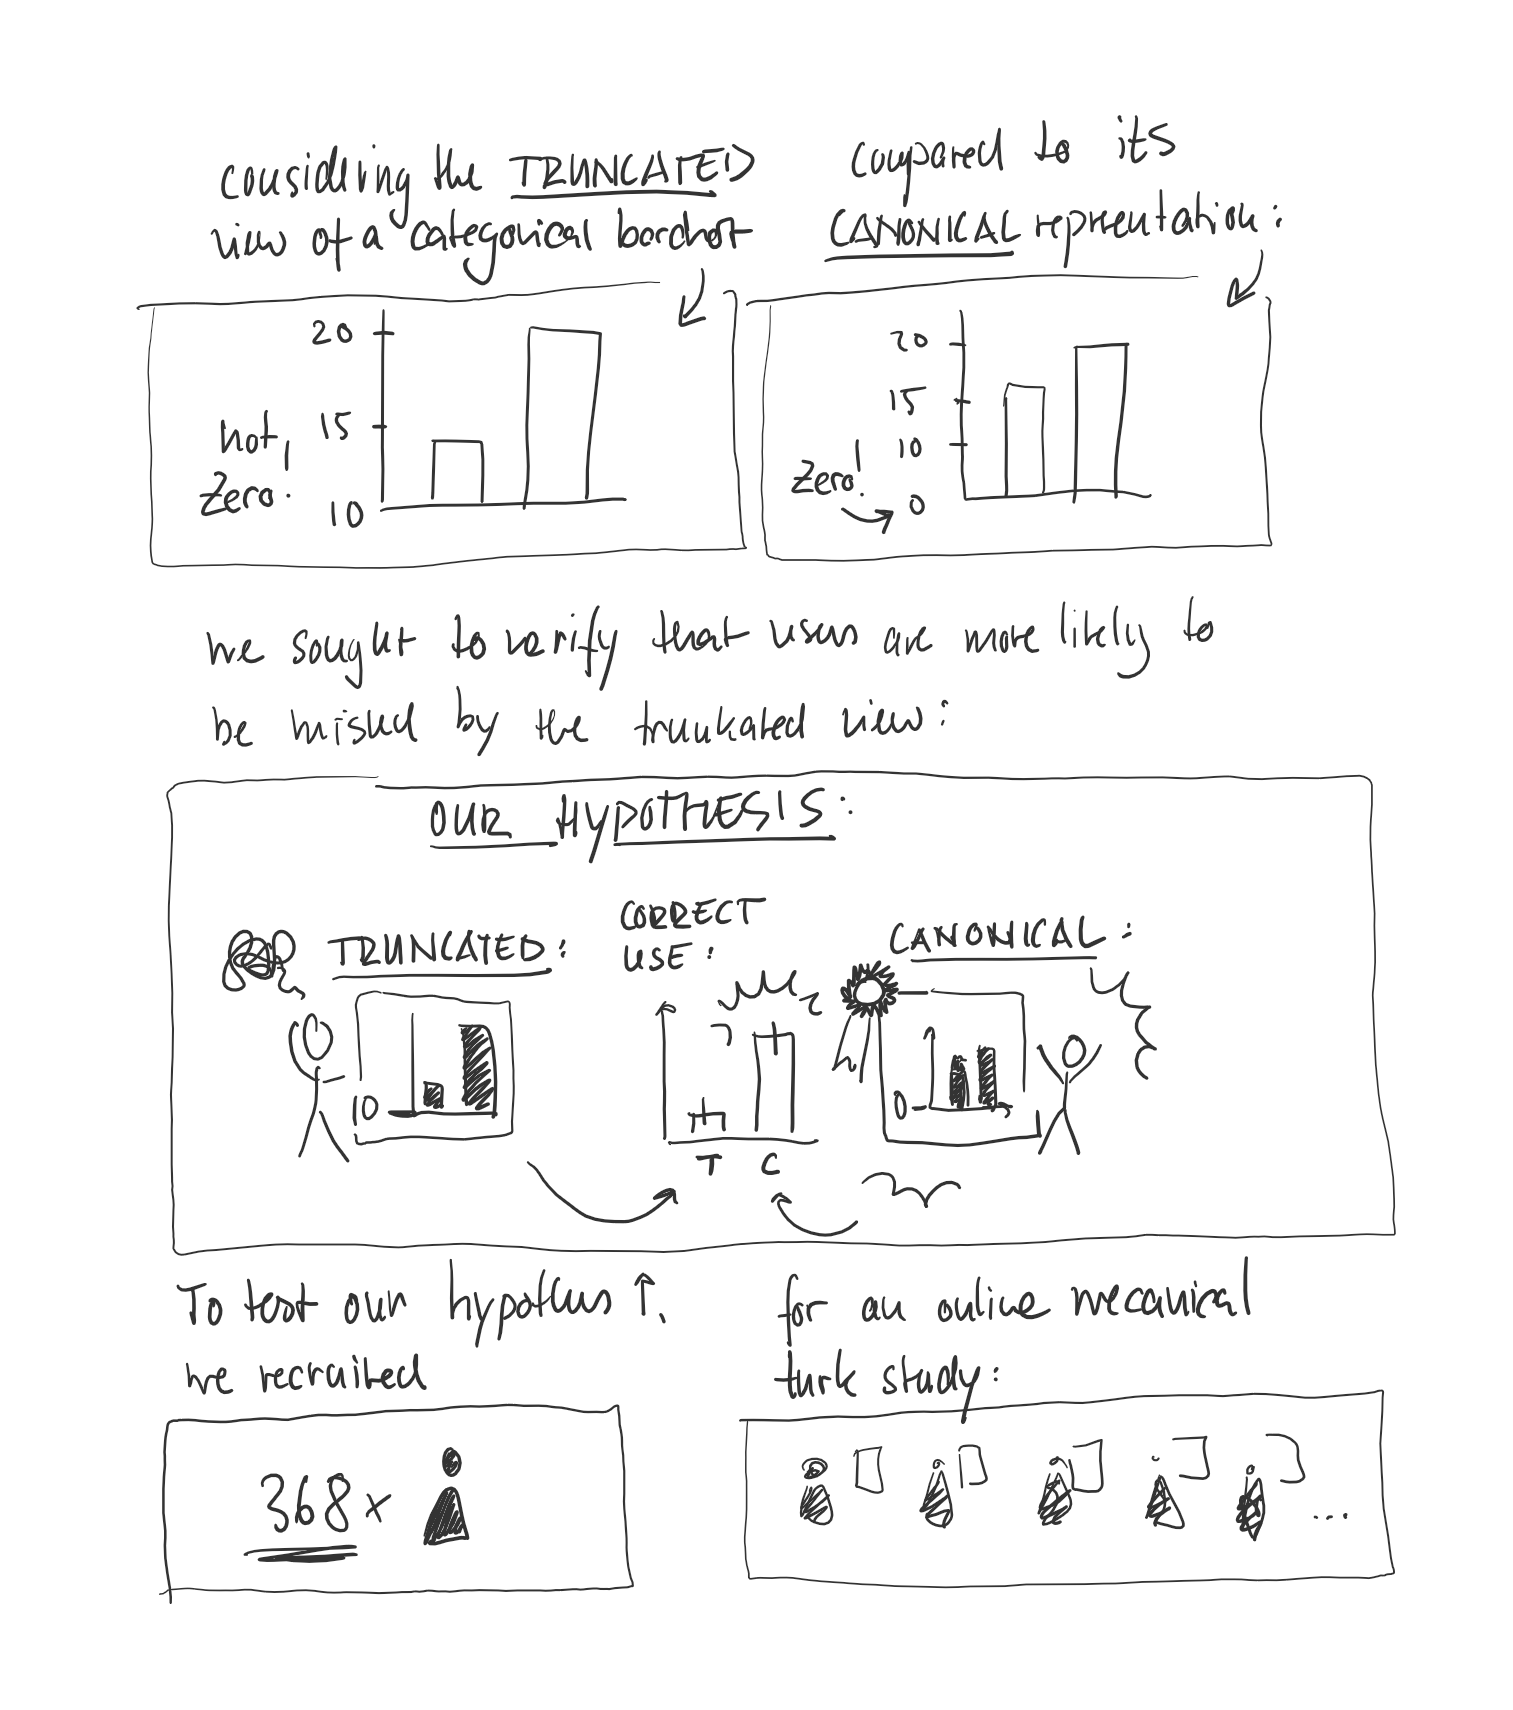 considering the TRUNCATED
view of a categorical barchart
compared to its
CANONICAL representation:
20
15
10
not
Zero!
20
15
10
0
Zero!
we sought to verify that users are more likely to
be misled by the trunkated view:
OUR HYPOTHESIS:
TRUNCATED:
10
CORRECT
USE:
T C
CANONICAL:
0
To test our hypothes ↑,
we recruited
for an online mecanical
turk study:
368 x
...